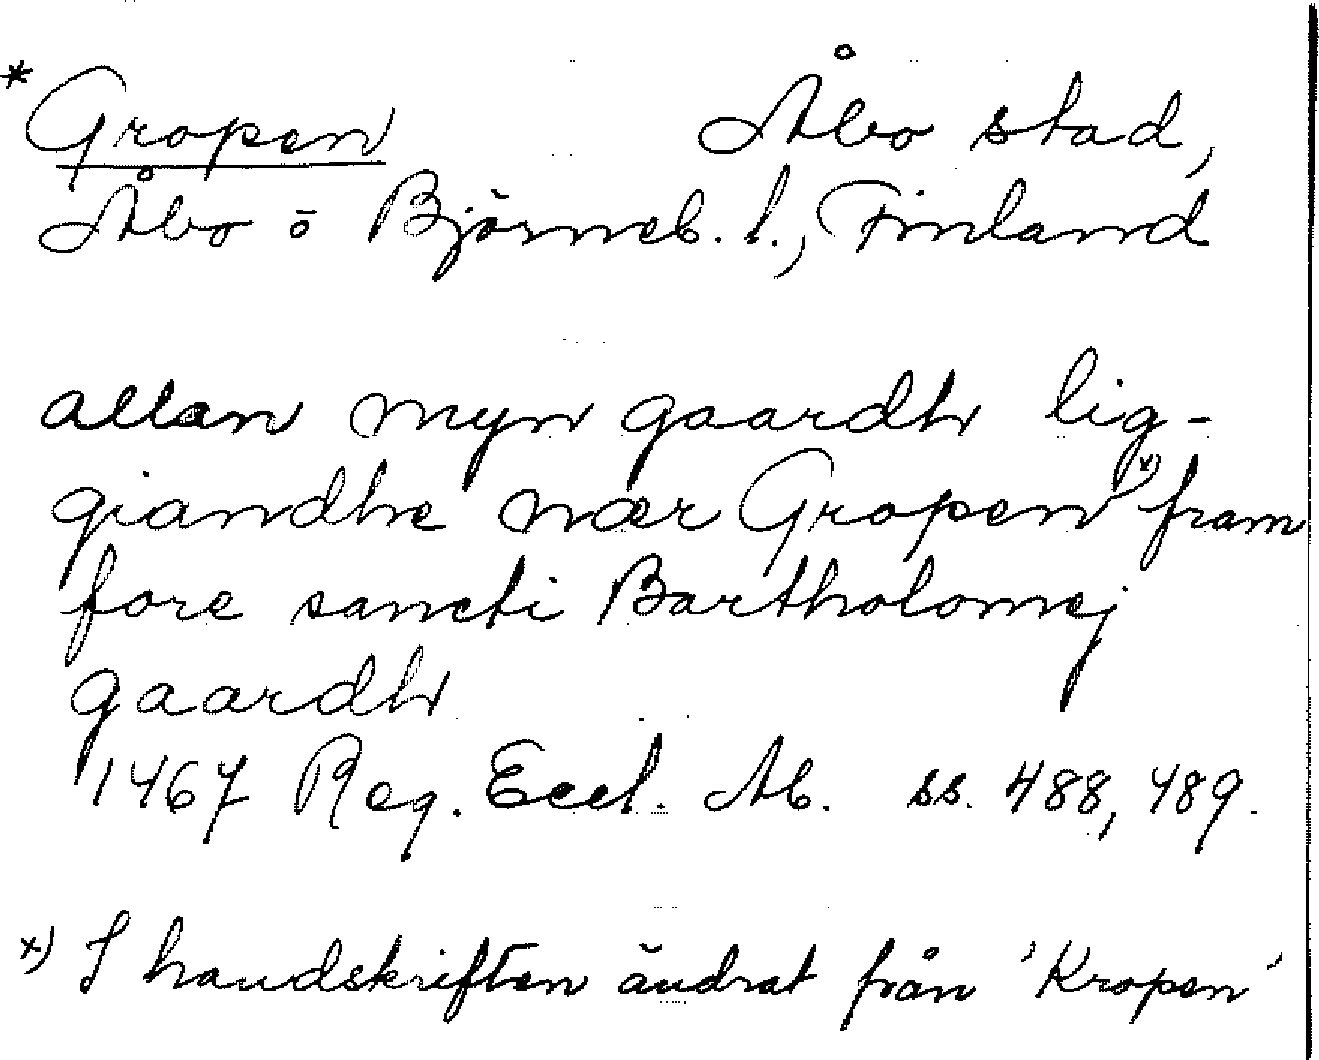 * Gropen Åbo stad,
Åbo o Björneb. l., Finland
allan myn gaardh lig-
giandhe nær Gropen x) fram
fore sancti Bartholomej
gaardh
1467 Reg. Eccl. Ab. ss. 488, 489.
x) I handskriften ändrat från 'Kropen'